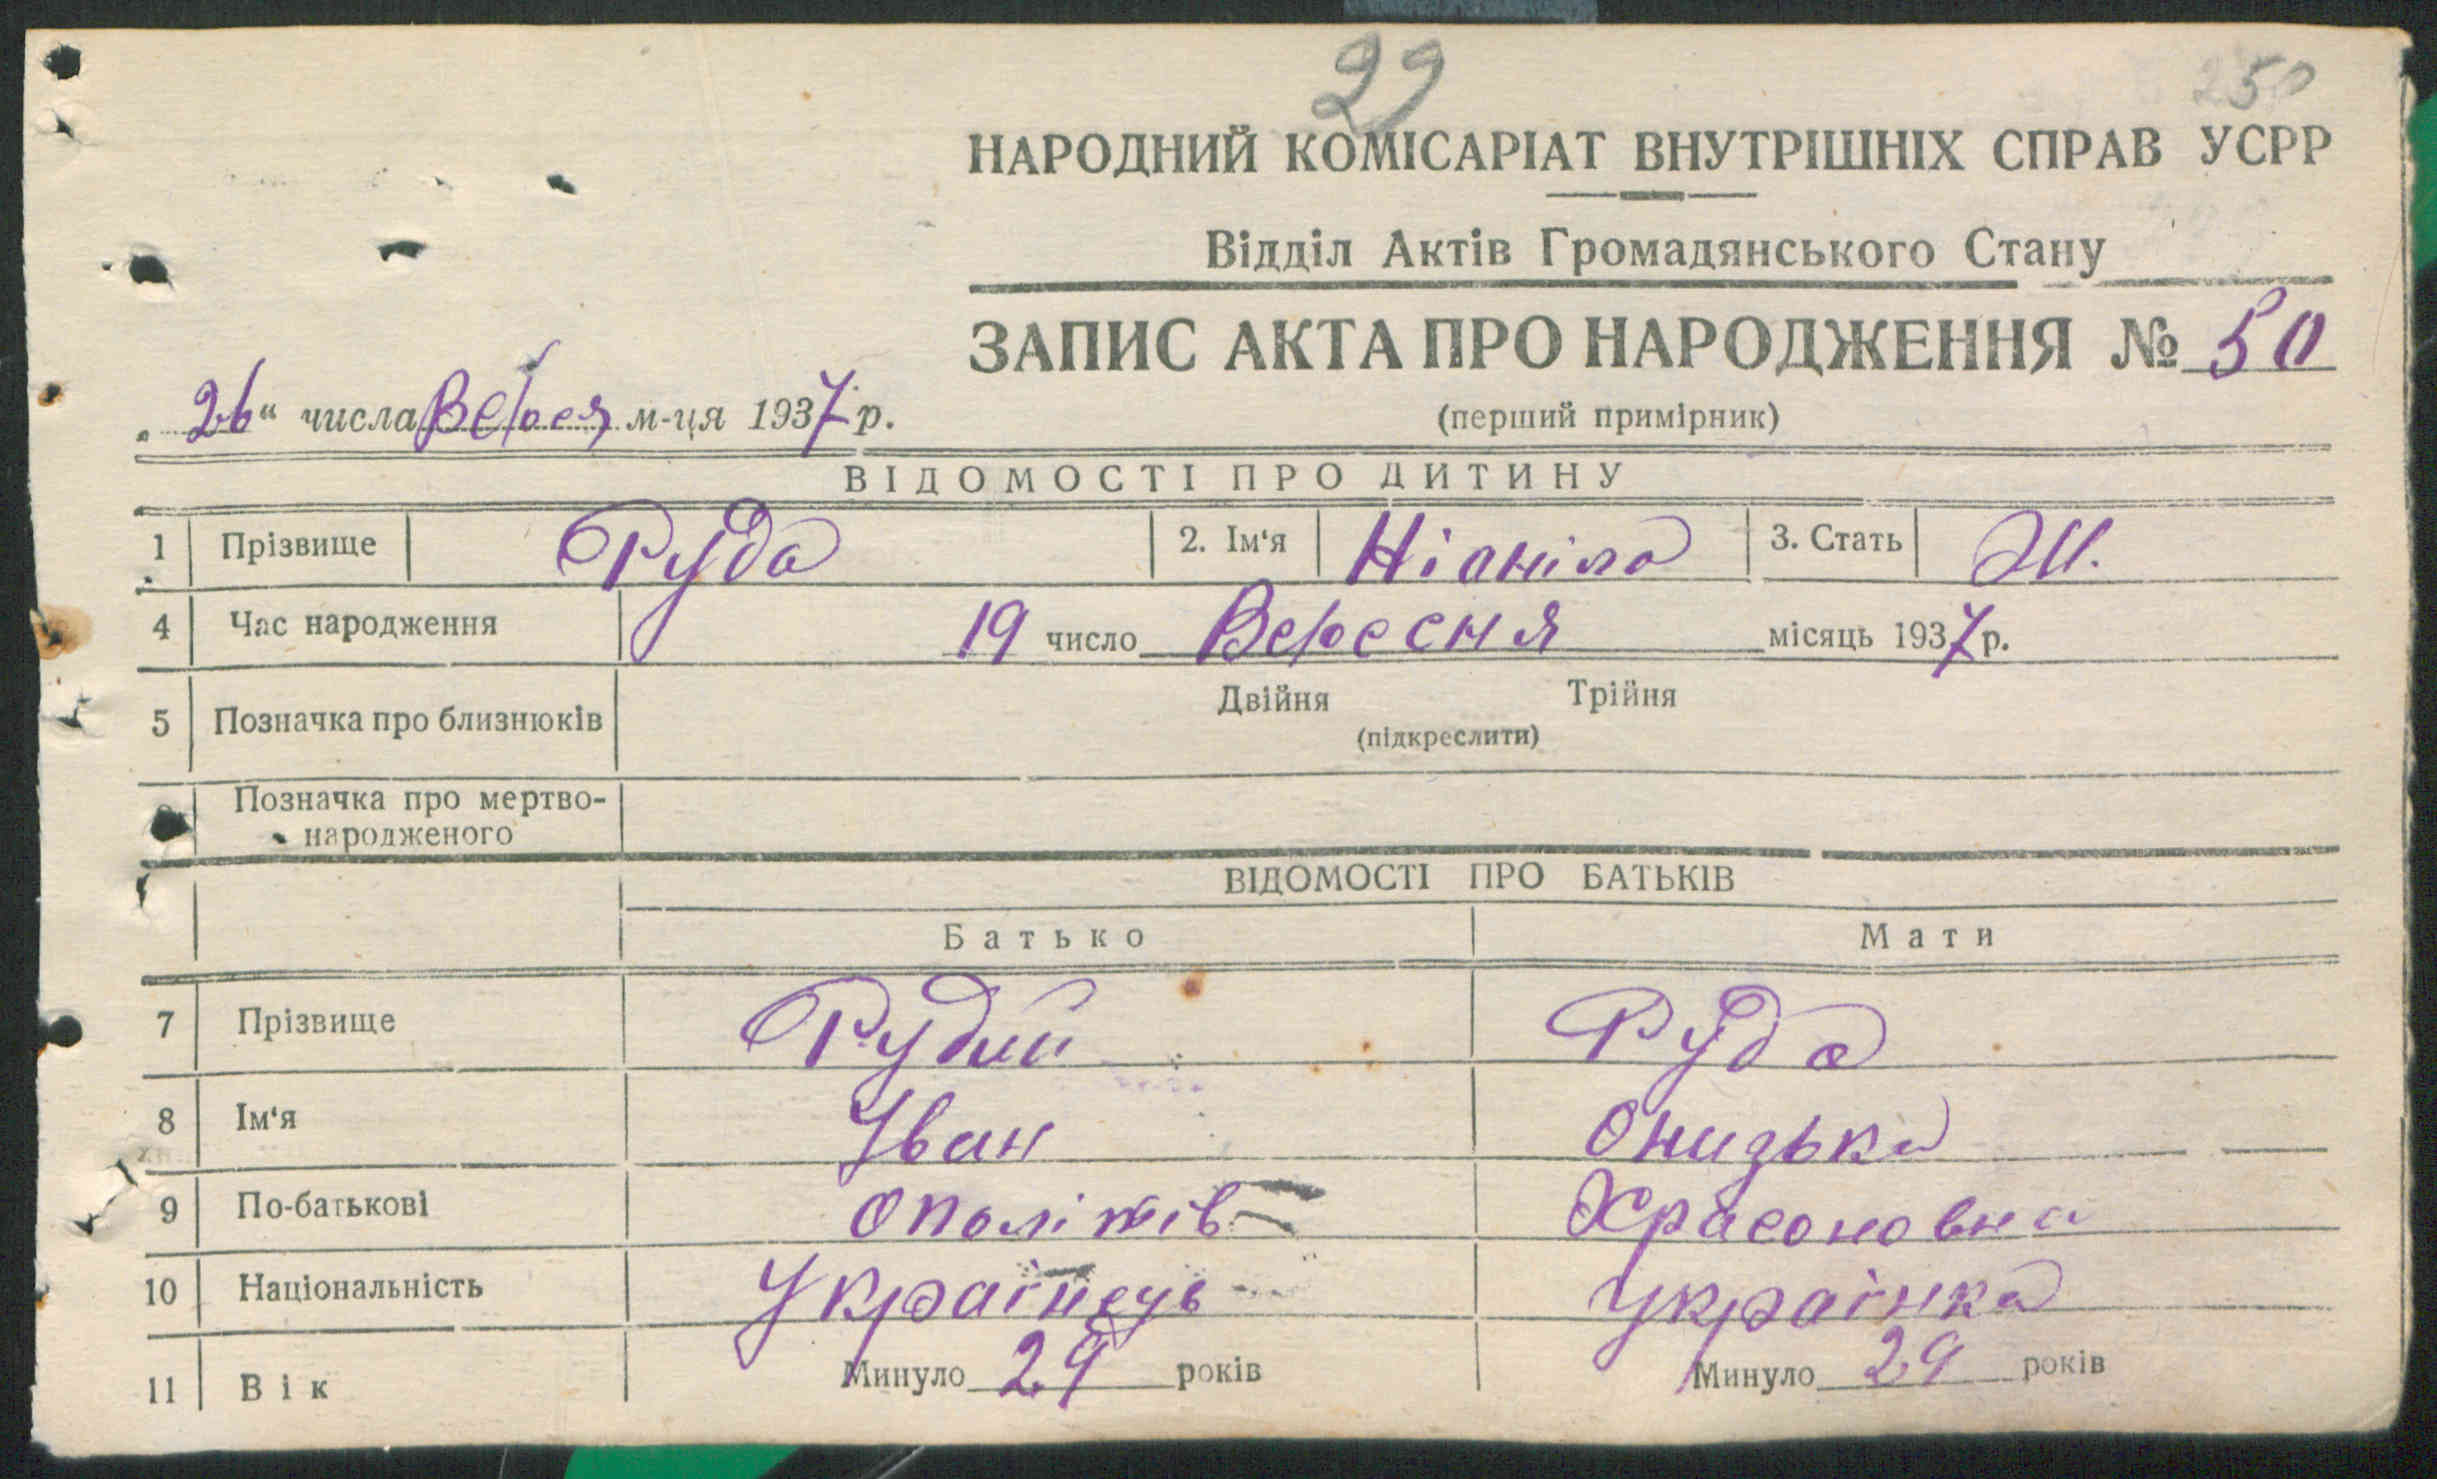 29
250
НАРОДНИЙ КОМІСАРІАТ ВНУТРІШНІХ СПРАВ УСРР
Відділ Актів Громадянського Стану
ЗАПИС АКТА ПРО НАРОДЖЕННЯ № 50
„26“ числа Верес м-ця 1937 р.
(перший примірник)
ВІДОМОСТІ ПРО ДИТИНУ
1 Прізвище Руда 2. Ім‘я Ніаніла 3. Стать Ж.
4 Час народження 19 число Вересня місяць 1937 р.
5 Позначка про близнюків Двійня Трійня
(підкреслити)
Позначка про мертво-
народженого
ВІДОМОСТІ ПРО БАТЬКІВ
Батько Мати
7 Прізвище Рудий Руда
8 Ім‘я Іван Онизька
9 По-батькові Ополітів Храсоновна
10 Національність Українець Українка
11 Вік Минуло 29 років Минуло 29 років